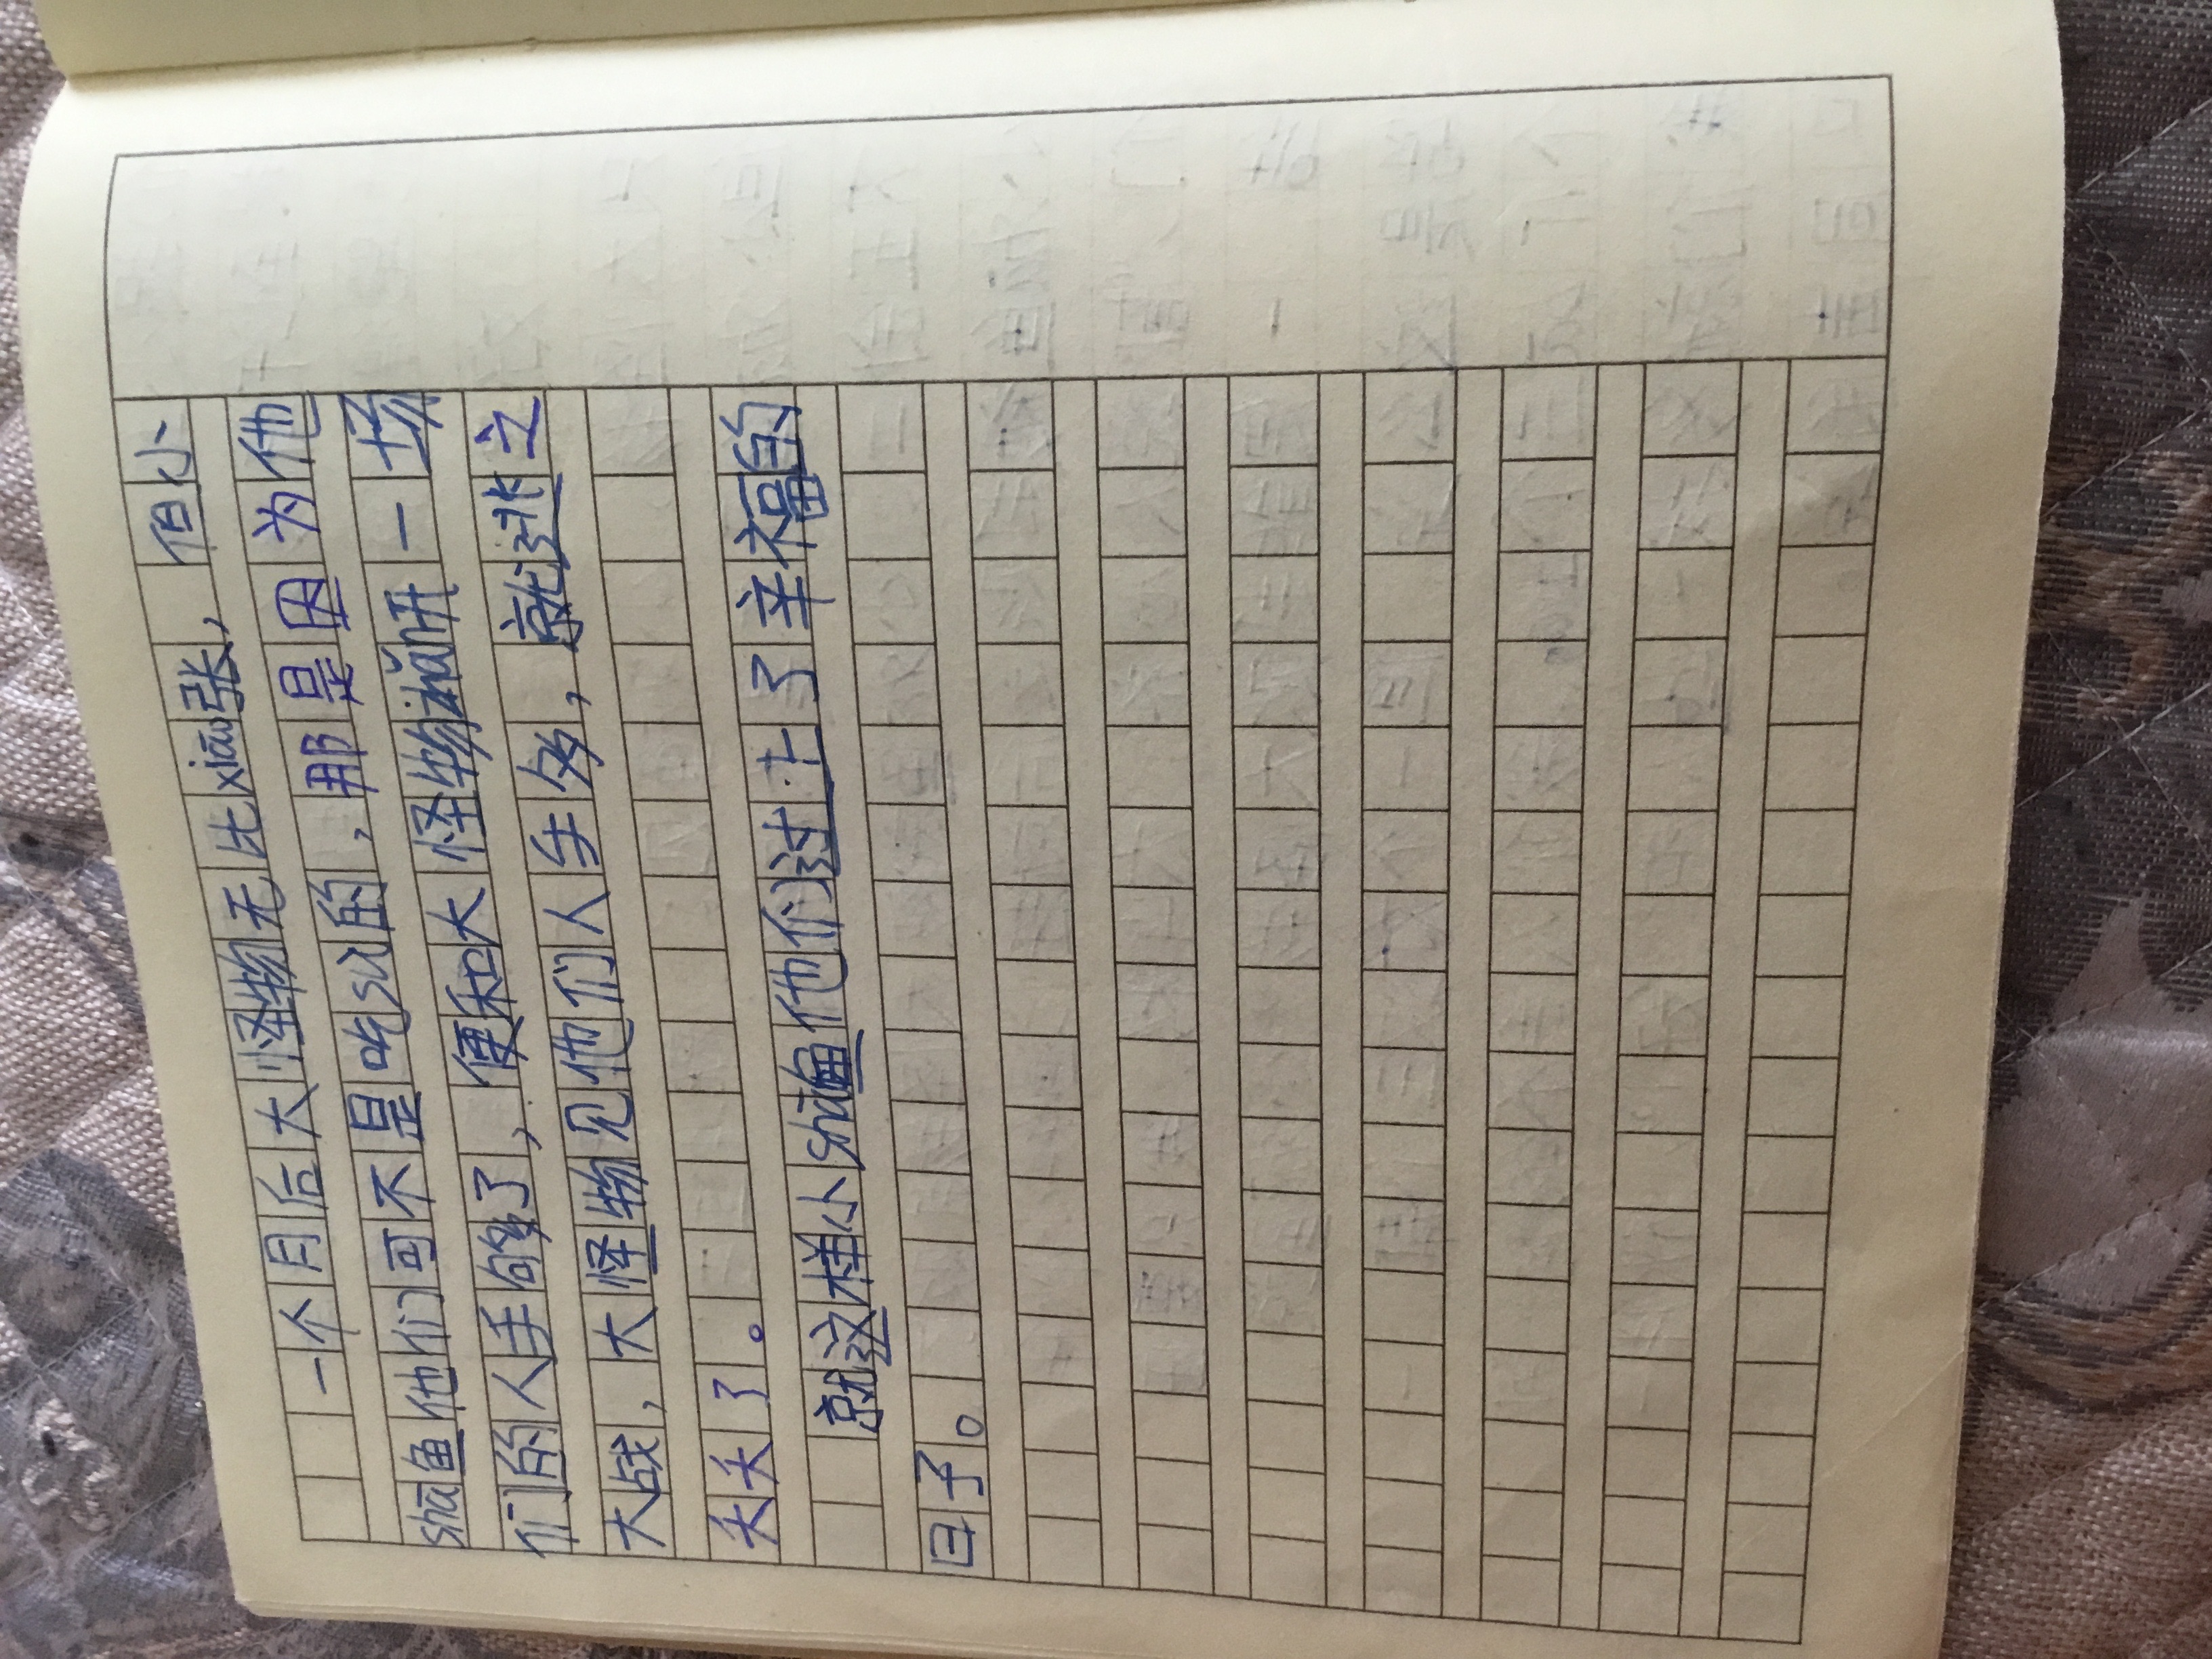 一个月后大怪物无比xiāo张，但小
shā鱼他们可不是吃sù的，那是因为他
们的人手够了，便和大怪物zhǎn开一场
大战，大怪物见他们人手多，就逃之
夭夭了。
就这样小shā鱼他们过上了辛福的
日子。